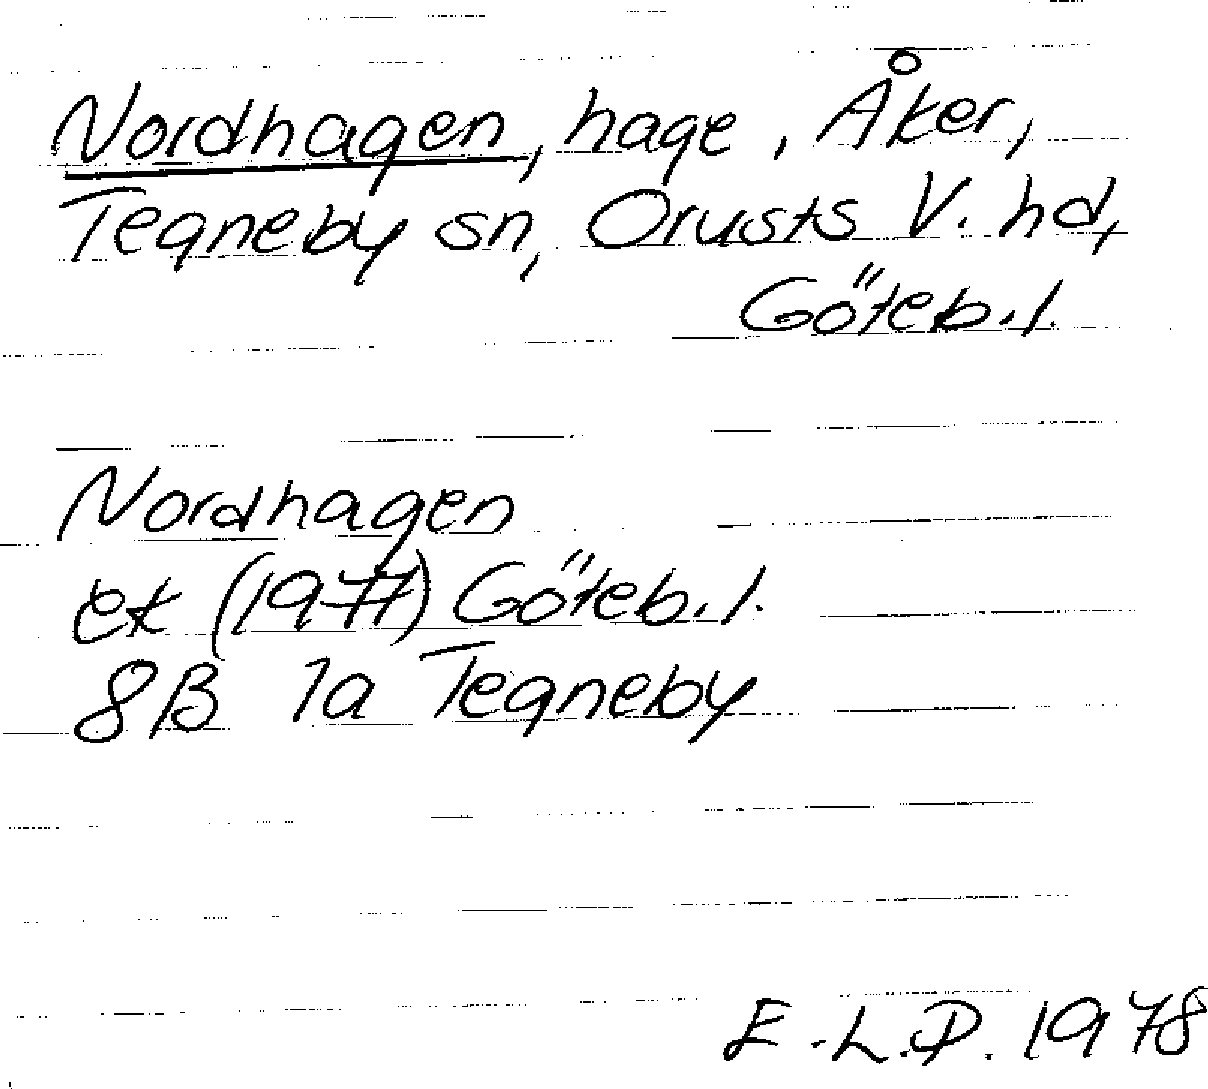 Nordhagen, hage, Åker,
Tegneby sn, Orusts V. hd,
Göteb.l.
Nordhagen
ek (1977) Göteb.l.
8B 1a Tegneby
E.L.P. 1978